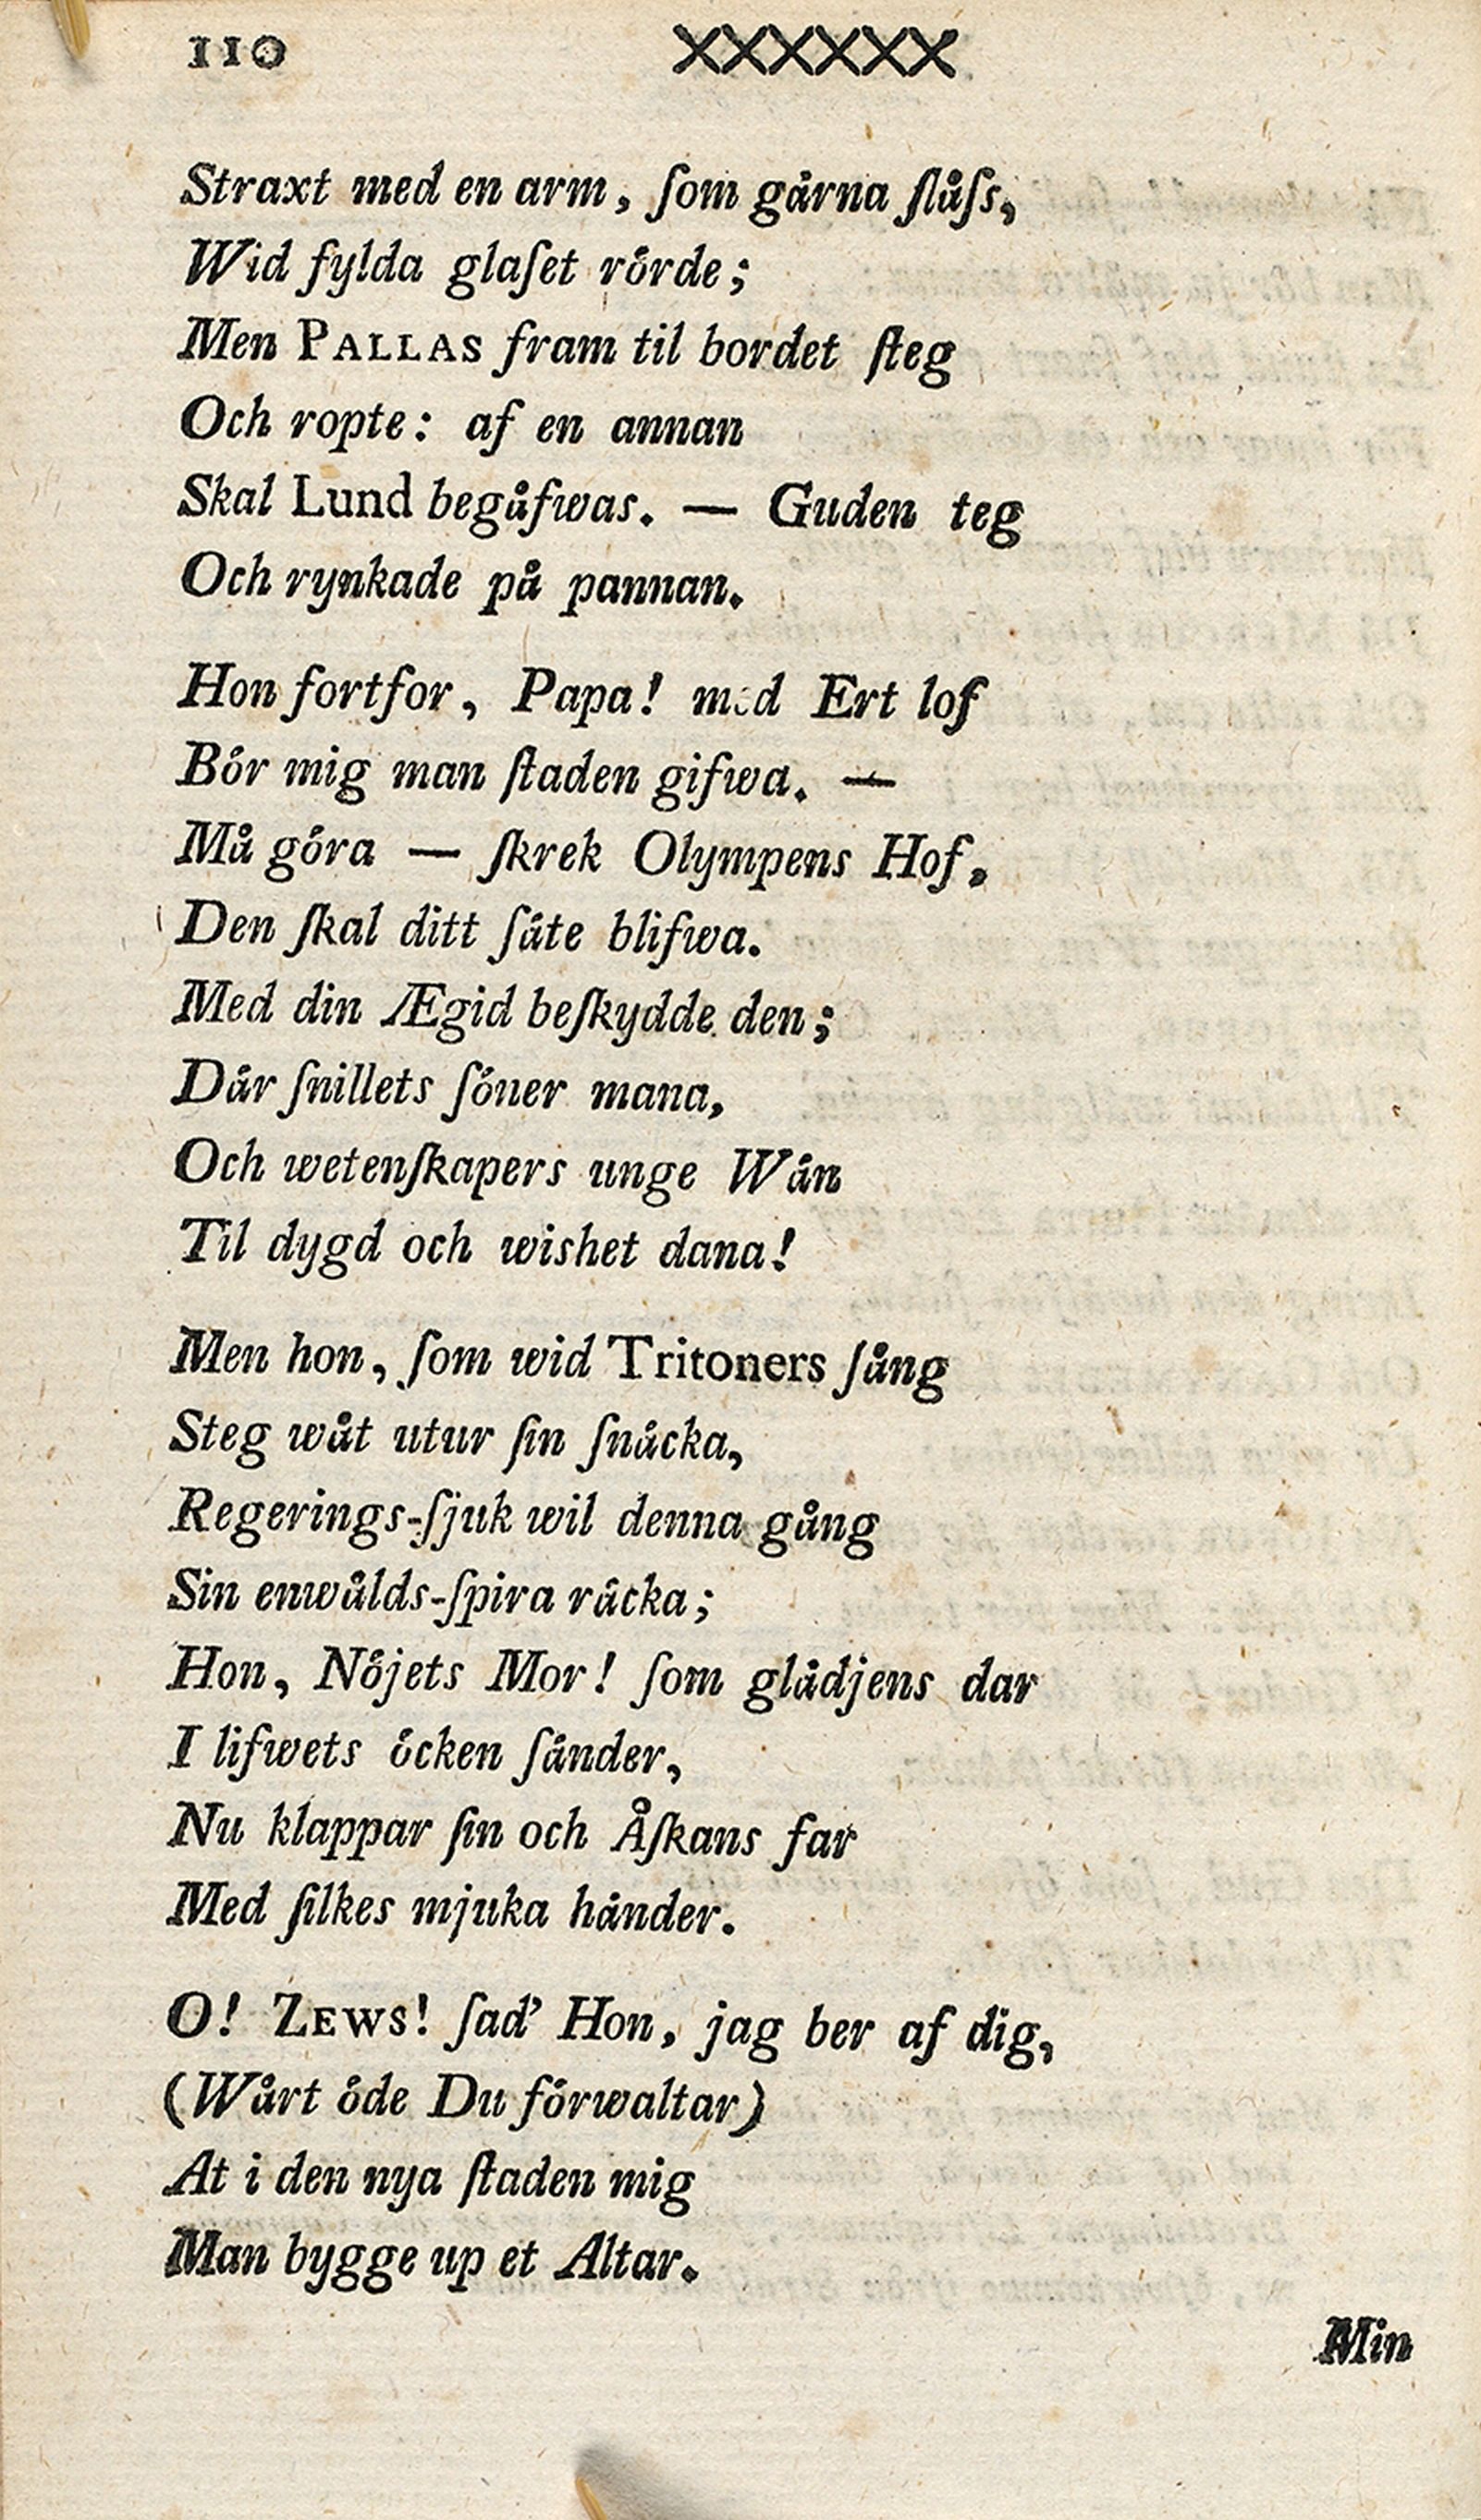 110 XXXXXX
Straxt med en arm, ſom gårna ſlåſs,
Wid fylda glaſet rörde;
Men PALLAS fram til bordet ſteg
Och ropte: af en annan
Skal Lund begåfwas. — Guden teg
Och rynkade på pannan.
Hon fortfor, Papa! med Ert lof
Bör mig man ſtaden gifwa. —
Må göra — ſkrek Olympens Hof.
Den ſkal ditt ſäte blifwa.
Med din Ægid beſkydde den;
Där ſnillets ſöner mana,
Och wetenſkapers unge Wän
Til dygd och wishet dana!
Men hon, ſom wid Tritoners ſång
Steg wåt utur ſin ſnäcka,
Regerings-ſjuk wil denna gång
Sin enwålds-ſpira räcka;
Hon, Nöjets Mor! ſom glädjens dar
I lifwets öcken ſänder,
Nu klappar ſin och Åſkans far
Med ſilkes mjuka händer.
O! ZEWS! ſad' Hon, jag ber af dig,
(Wårt öde Du förwaltar)
At i den nya ſtaden mig
Man bygge up et Altar.
Min